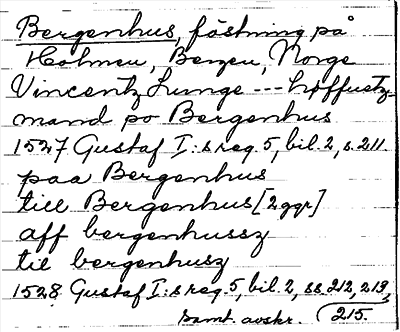 Bergenhus, fästning på
Holmen, Bergen, Norge
Vincentz Lunge --- høffuitz-
mand po Bergenhus
1527 Gustaf I:s reg. 5, bil. 2, s. 211.
paa Bergenhus
till Bergenhus [2 ggr]
aff bergenhussz
til bergenhusz
1528 Gustaf I:s reg. 5, bil. 2, ss. 212, 213,
samt. avskr. 215.